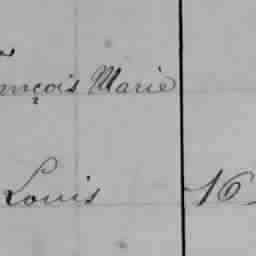 ançois Marie
Louis 16